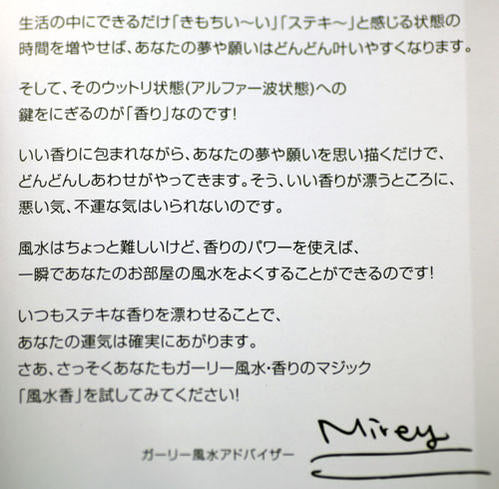 生活の中にできるだけ「きもちい〜い」「ステキ〜」と感じる状態の
時間を増やせば、あなたの夢や願いはどんどん叶いやすくなります。
そして、そのウットリ状態(アルファー波状態)への
鍵をにぎるのが「香り」なのです!
いい香りに包まれながら、あなたの夢や願いを思い描くだけで、
どんどんしあわせがやってきます。そう、いい香りが漂うところに、
悪い気、不運な気はいられないのです。
風水はちょっと難しいけど、香りのパワーを使えば、
一瞬であなたのお部屋の風水をよくすることができるのです!
いつもステキな香りを漂わせることで、
あなたの運気は確実にあがります。
さあ、さっそくあなたもガーリー風水・香りのマジック
「風水香」を試してみてください!
ガーリー風水アドバイザー Mirey